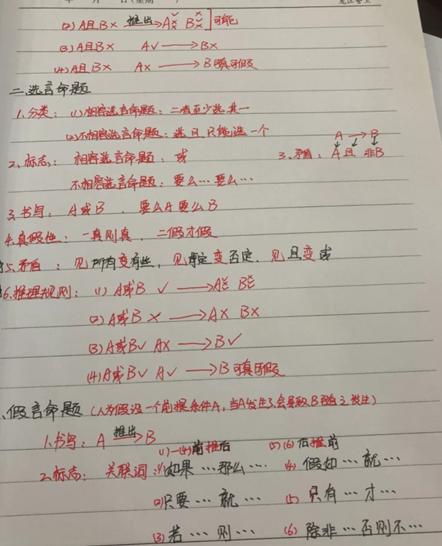 (2) A且B × 推出→ A✓× B×✓ ]可能
(3) A且B × A✓ → B×
(4) A且B × A× → B可真可假
二、选言命题
1.分类: (1) 相容选言命题: 二者至少选其一
(2) 不相容选言命题: 选且只能选一个
2.标志: 相容选言命题: 或
不相容选言命题: 要么…要么…
3.矛盾: A → B
A 且 非B
3.书写: A或B , 要么A要么B
4.真假性: 一真则真, 二假才假
5.矛盾: 见所有变有些, 见肯定变否定, 见且变或
6.推理规则: (1) A或B ✓ → A B
(2) A或B × → A× B×
(3) A或B✓ A× → B✓
(4) A或B✓ A✓ → B可真可假
假言命题 (人为假设一个前提条件A, 当A发生了会导致B随之发生)
1.书写: A 推出→ B
(1)-(4)前推后 (5)(6)后推前
2.标志: 关联词: (1) 如果…那么… (4) 假如…就…
(2) 只要…就… (5) 只有…才…
(3) 若…则… (6) 除非…否则不…